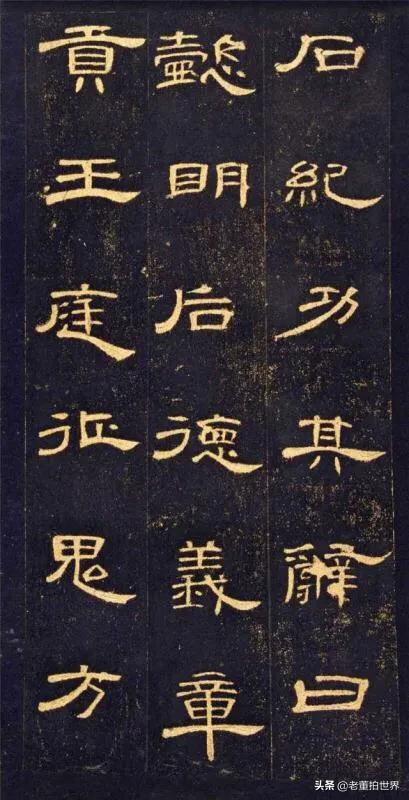 石紀功其辭曰
懿明后德義章
貢王庭征鬼方
头条 @老董拍世界